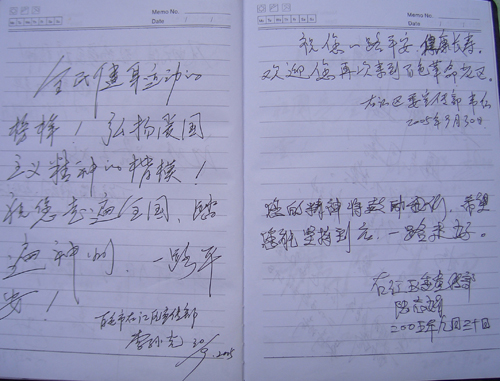 Memo No.
Date / /
全民健身运动的
榜样！弘扬爱国
主义精神的楷模！
祝您走遍全国、踏
遍神州，一路平
安！
百色市右江区宣传部
20/9.2005
Memo No.
Date / /
祝您一路平安，健康长寿。
欢迎您再次来到百色革命老区。
右江区委宣传部
2005年9月30日
您的精神将鼓励我们，希望
您能坚持到底，一路走好。
右江区委宣传部
二00五年九月三十日